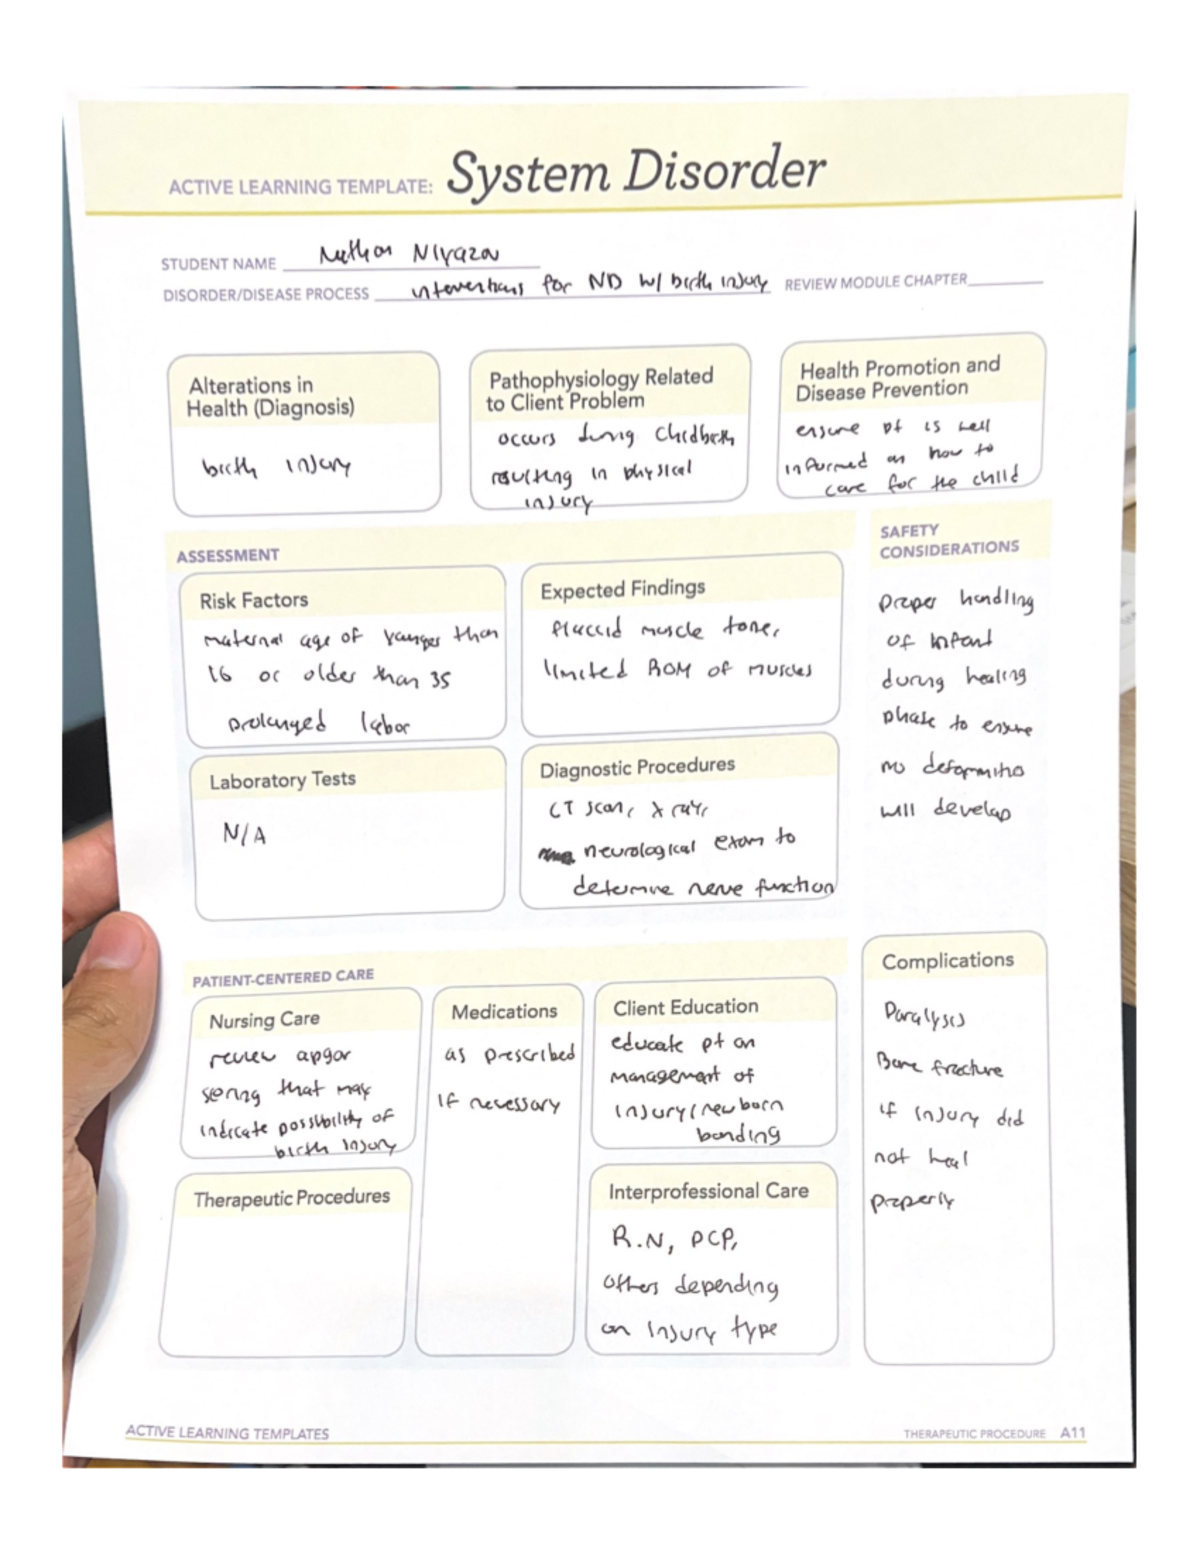 ACTIVE LEARNING TEMPLATE: System Disorder
STUDENT NAME Nathan Niyazov
DISORDER/DISEASE PROCESS interventions for ND w/ birth injury REVIEW MODULE CHAPTER
Alterations in
Health (Diagnosis)
birth injury
Pathophysiology Related
to Client Problem
occurs during childbirth
resulting in physical
injury
Health Promotion and
Disease Prevention
ensure pt is well
informed on how to
care for the child
ASSESSMENT
Risk Factors
maternal age of younger than
16 or older than 35
prolonged labor
Expected Findings
flaccid muscle tone,
limited ROM of muscles
Laboratory Tests
N/A
Diagnostic Procedures
CT scan, x ray,
neurological exam to
determine nerve function
SAFETY
CONSIDERATIONS
proper handling
of infant
during healing
phase to ensure
no
will develop
PATIENT-CENTERED CARE
Nursing Care
review apgar
scoring that may
indicate possibility of
birth injury
Medications
as prescribed
if necessary
Client Education
educate pt on
management of
injury/newborn
bonding
Therapeutic Procedures
Interprofessional Care
R.N, PCP,
others depending
on injury type
Complications
Paralysis
Bone fracture
if injury did
not heal
properly
ACTIVE LEARNING TEMPLATES
THERAPEUTIC PROCEDURE A11